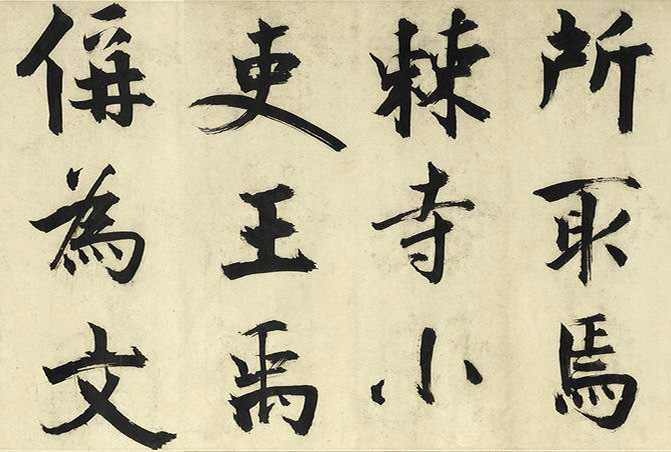 所取焉
棘寺小
吏王禹
偁為文